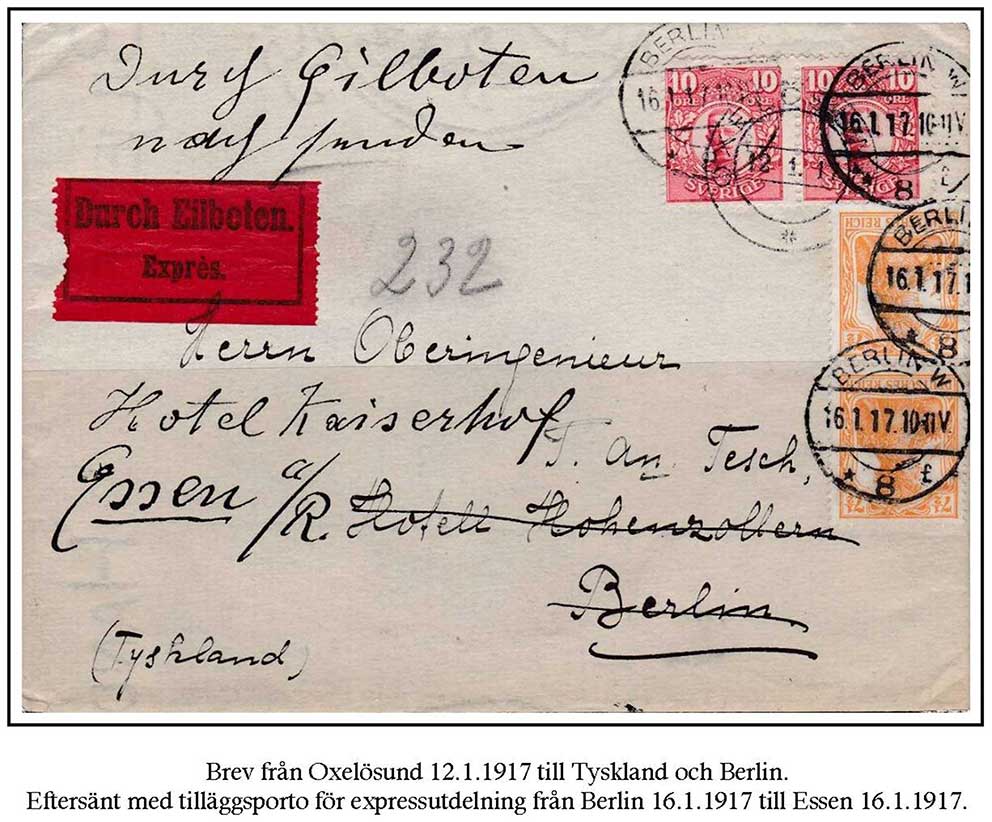 Durch Eilboten
nach senden
Durch Eilboten.
Exprès.
232
Herrn Oberingenieur
Hotel Kaiserhof
T. An. Tesch,
Essen a/R. Hotell Hohenzollern
Berlin
(Tyskland)
10 10
ÖRE
SVERIGE
10 10
ÖRE
SVERIGE
BERLIN
16.1.17
12.1.1
BERLIN W
16.1.17.10-11V.
8
REICH
BERLIN
16.1.17.1
8
BERLIN W
16.1.17.10-11V.
8
REICH
7½ 7½
Brev från Oxelösund 12.1.1917 till Tyskland och Berlin.
Eftersänt med tilläggsporto för expressutdelning från Berlin 16.1.1917 till Essen 16.1.1917.